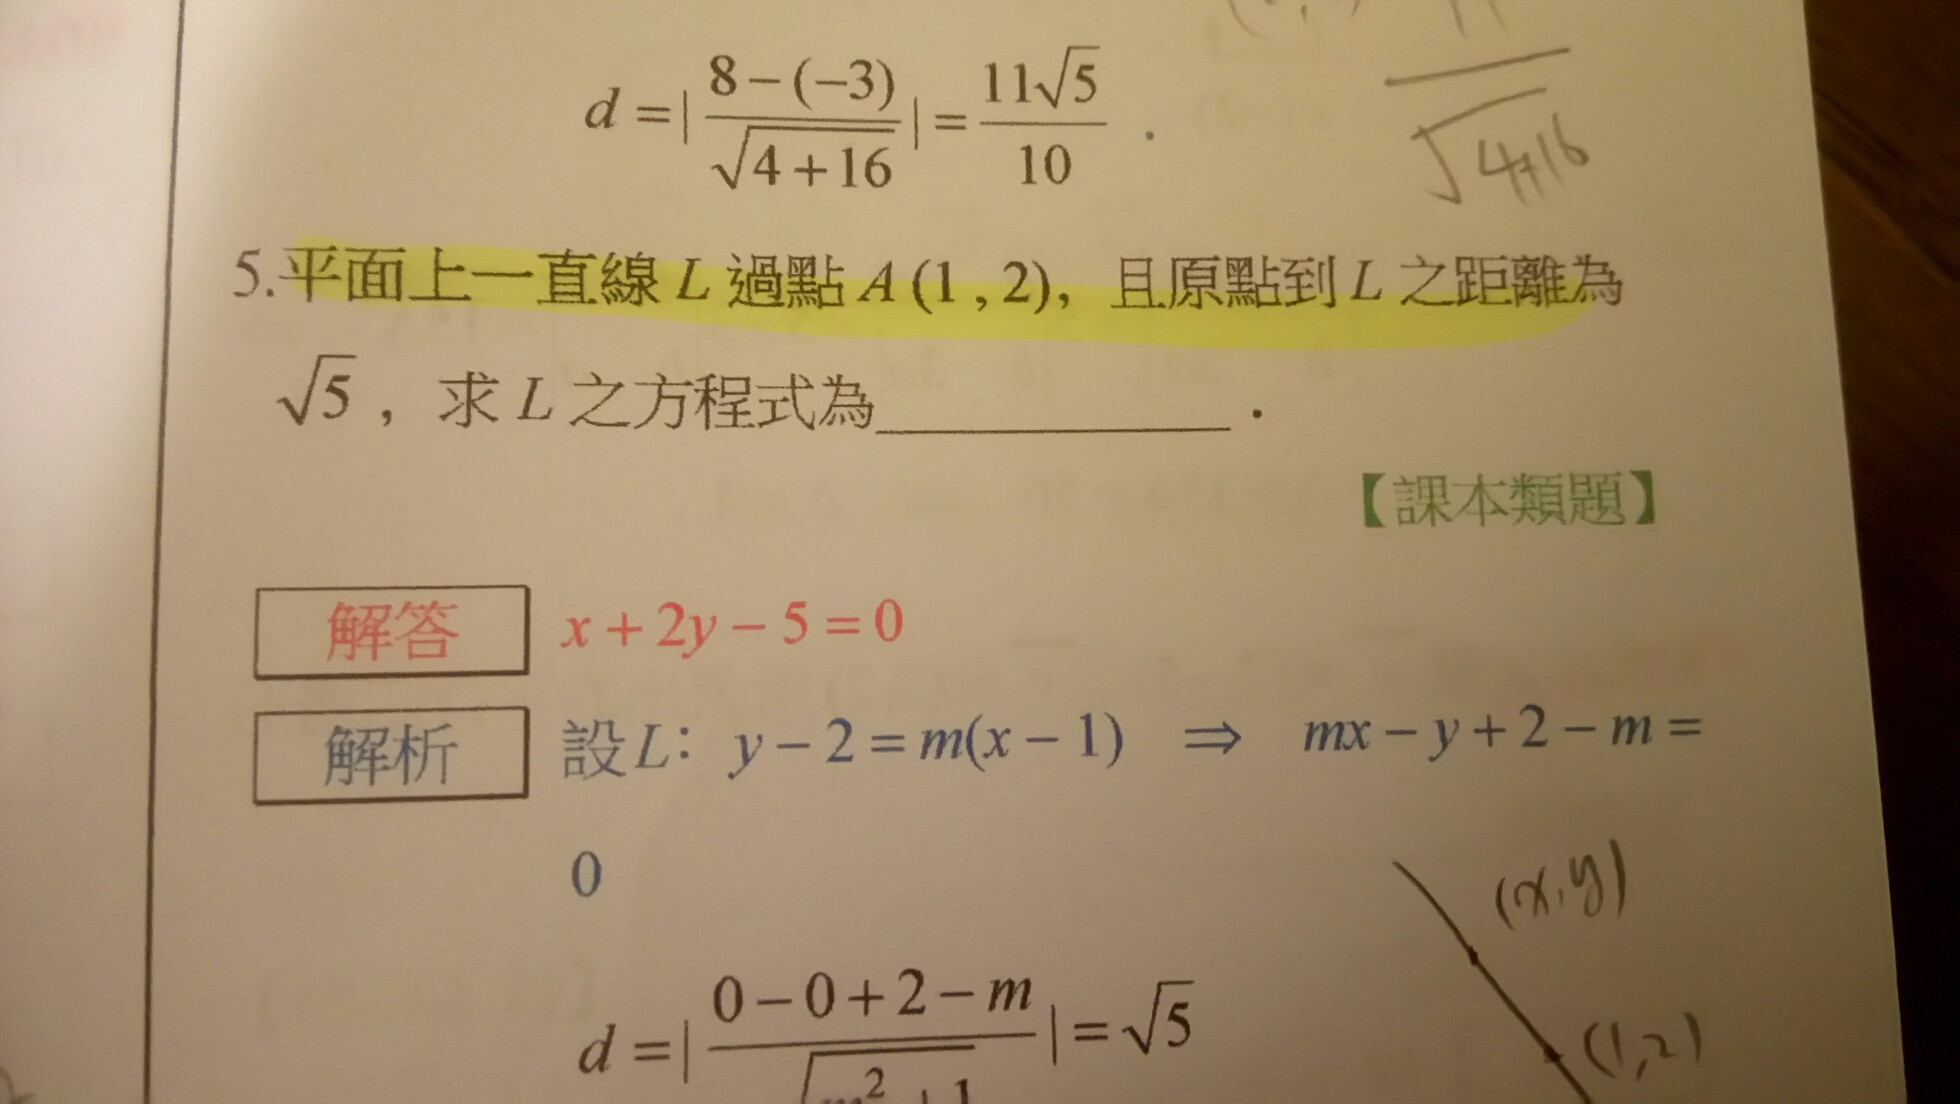 d = | 8 − (−3) / √4 + 16 | = 11√5 / 10 .
11 / √4+16
5.平面上一直線 L 過點 A (1 , 2)，且原點到 L 之距離為
√5 ，求 L 之方程式為____________ .
【課本類題】
解答 x + 2y − 5 = 0
解析 設 L：y − 2 = m(x − 1) ⇒ mx − y + 2 − m =
0
(x,y)
d = | 0 − 0 + 2 − m / √m² + 1 | = √5
(1,2)